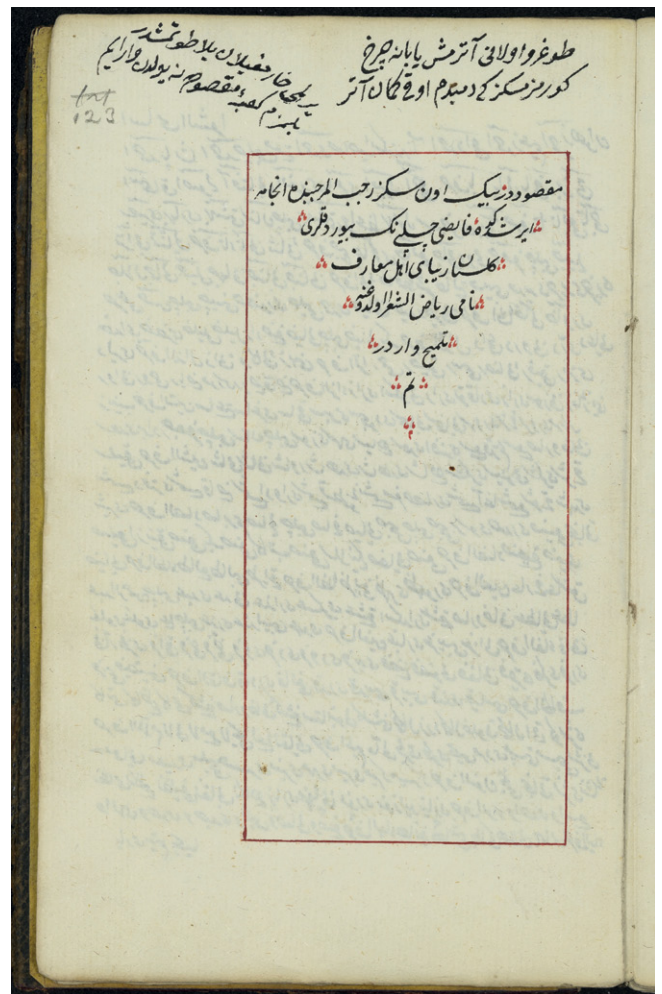 طوغرو اولانی آتر مش یابانه چرخ
کورمز مسکز که دمبدم اوقی کمان آتر
یر یر خار مغیلان یلا طوتمشدر
بلمزم کعبهٔ مقصوده نه یولدن وارایم
123
مقصود در بیک اون سکز رجب المرجبنده انجامه
ایرشدکده فایضی چلبی نک بیوردقلری
کلستان زیبای اهل معارف
نامی ریاض الشعرا اولدوغنه
تلمیح وار در
تم